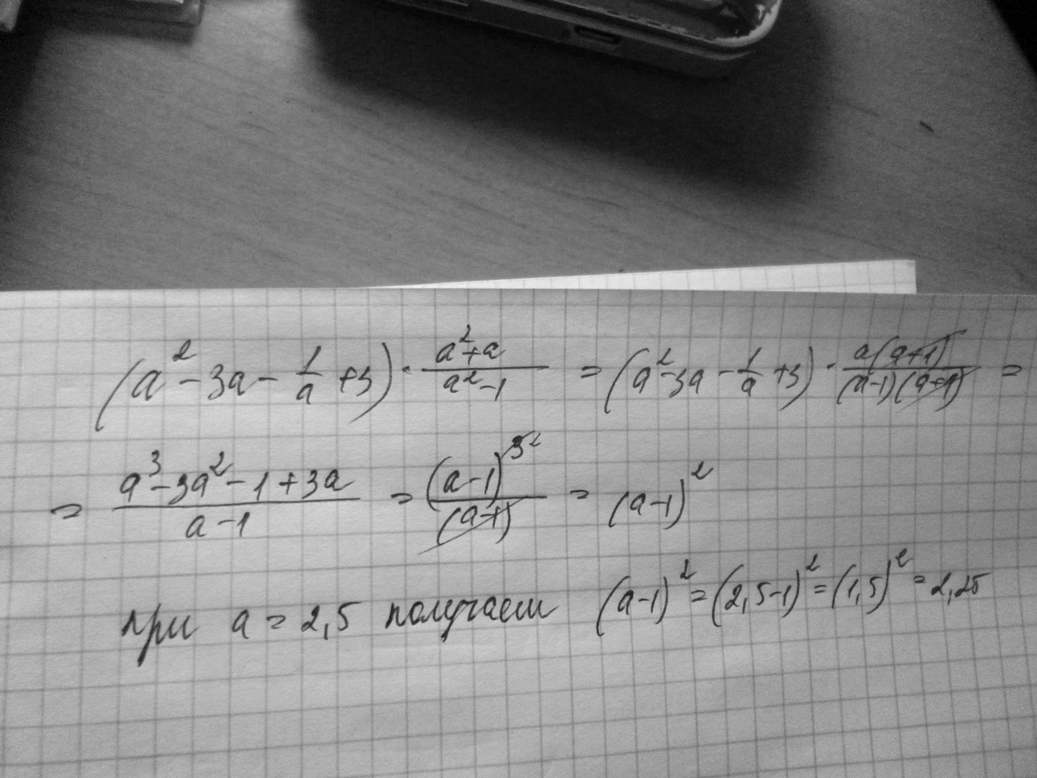 (a² - 3a - 1/a + 3) · (a² + a)/(a² - 1) = (a² - 3a - 1/a + 3) · a(a+1)/(a-1)(a+1) =
= (a³ - 3a² - 1 + 3a)/(a - 1) = (a-1)³ ²/(a-1) = (a-1)²
при a = 2,5 получаем (a-1)² = (2,5-1)² = (1,5)² = 2,25